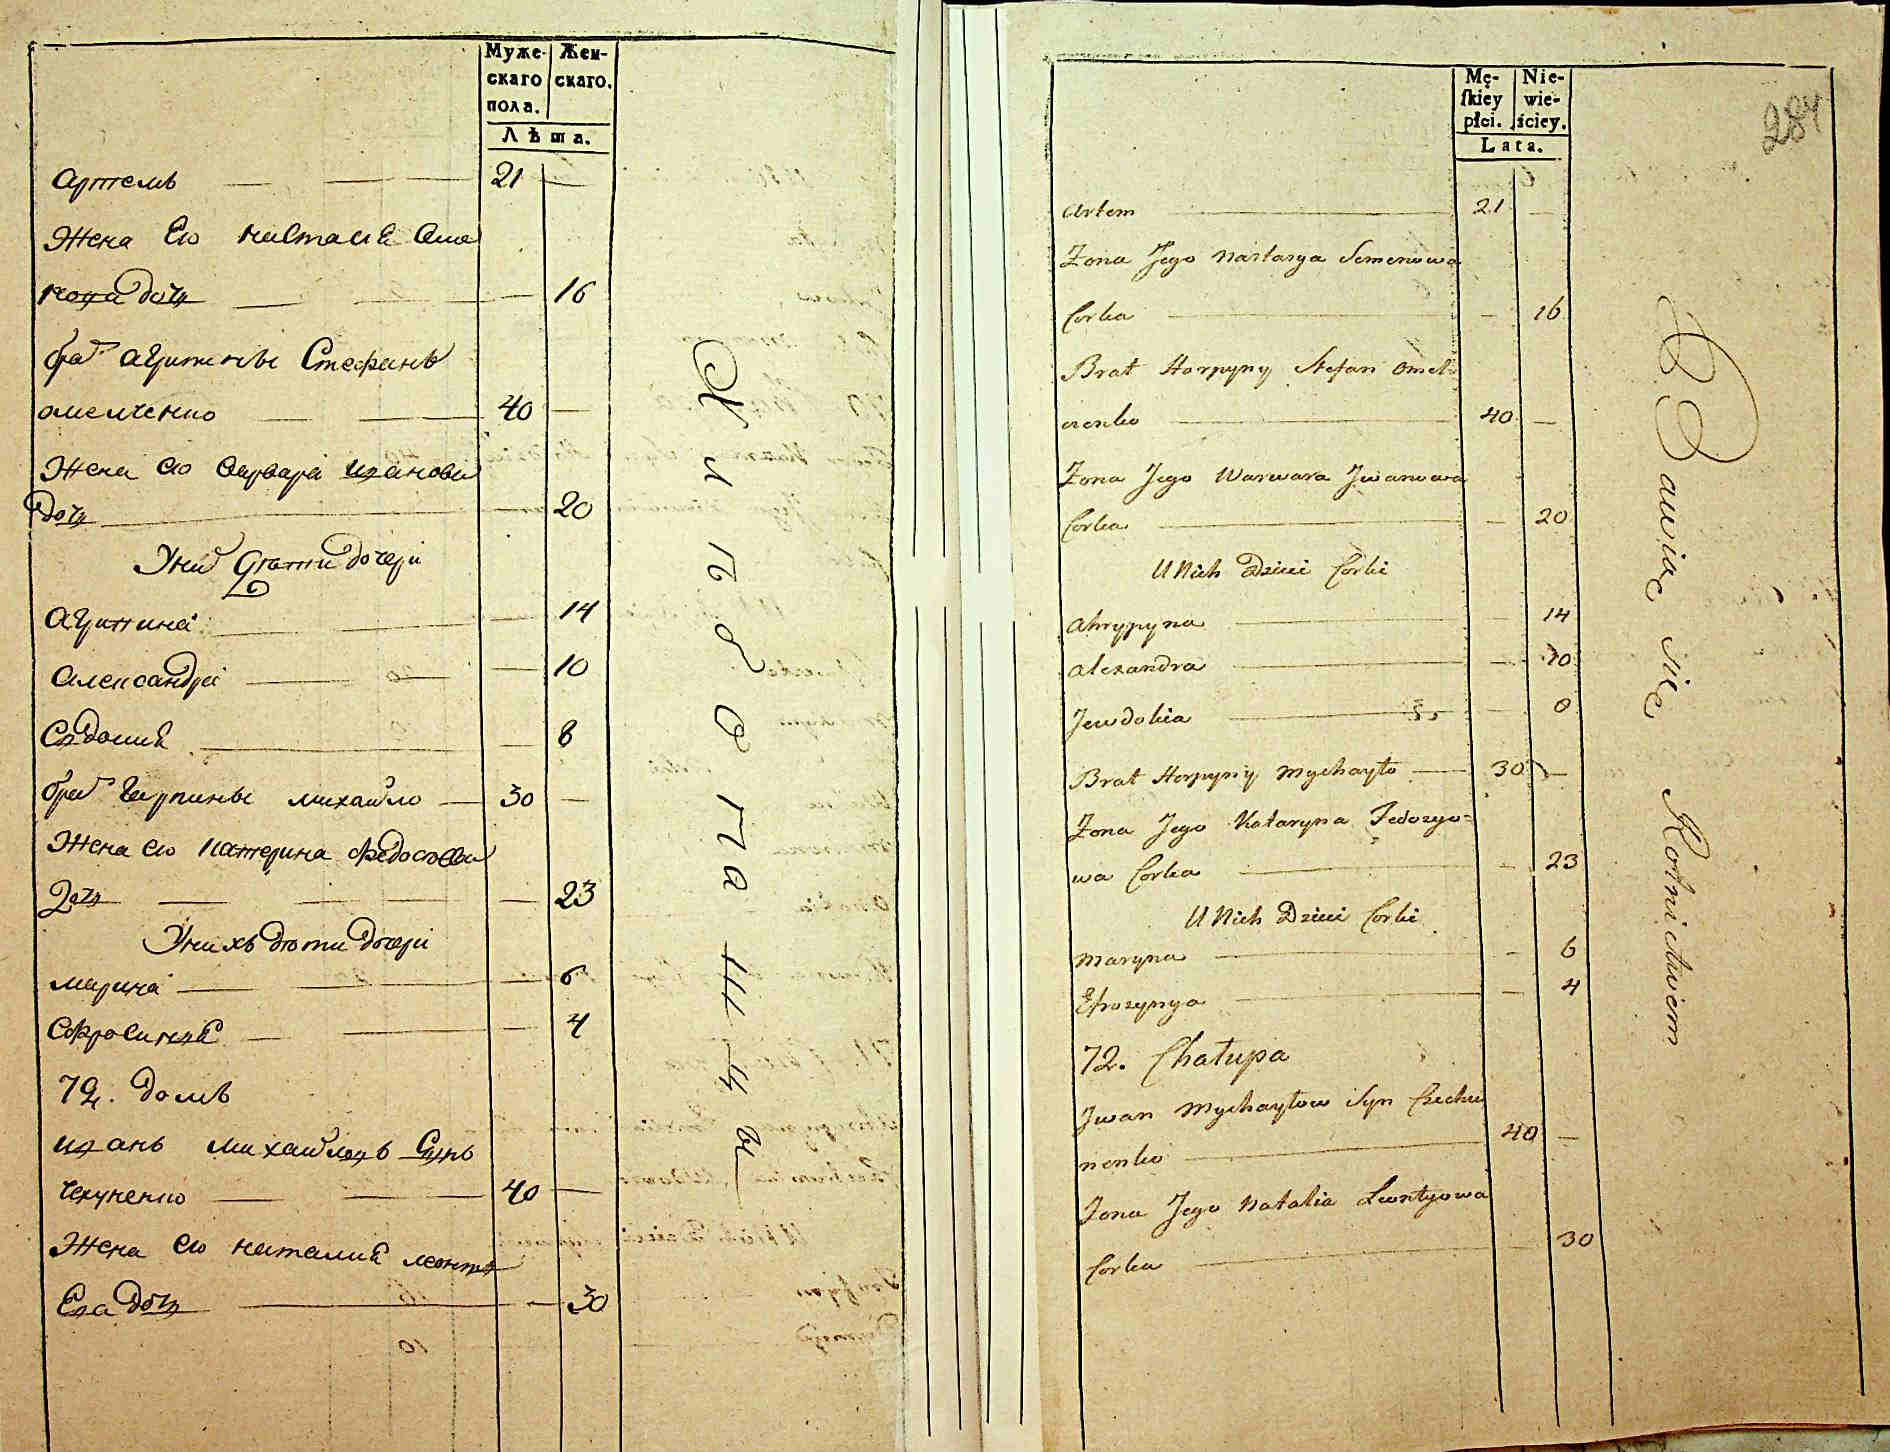 Муже-
скаго
пола.
Жен-
скаго.
Лѣта.
Артемъ 21 —
Жена Ево Настасия Семе
нова дочь — 16
брат Агрипины Стефанъ
омелченко 40 —
Жена ево Варвара Иванова
дочь — 20
У них дѣти дочери
Агрипина — 14
Александра — 10
Евдокия — 8
брат Гарпины михайло 30 —
Жена ево катерина Федосова
дочь — 23
У нихъ дѣти дочери
марина — 6
Ефросиния — 4
72. домъ
иванъ михайловъ Сынъ
чехуненко 40 —
Жена ево наталия леонтъ
Ева дочь — 30
Хлѣбопашцы
Mę-
ſkiey
płci.
Nie-
wie-
ściey.
Lata.
284
Artem 21 —
Żona Jego Nastasya Semenowa
Corka — 16
Brat Horpyny Stefan Omel
czenko 40 —
Żona Jego Warwara Jwanowa
Corka — 20
U Nich Dzieci Corki
Ahrypyna — 14
Alexandra — 10
Jewdokia — 8
Brat Horpyny Mychayło 30 —
Żona Jego Kataryna Fedosyo=
wa Corka — 23
U Nich Dzieci Corki
Maryna — 6
Efrozynya — 4
72. Chałupa
Jwan Mychayłow Syn Czechu
nenko 40 —
Żona Jego Natalia Leontyowa
Corka — 30
Bawiąc się Rolnictwem